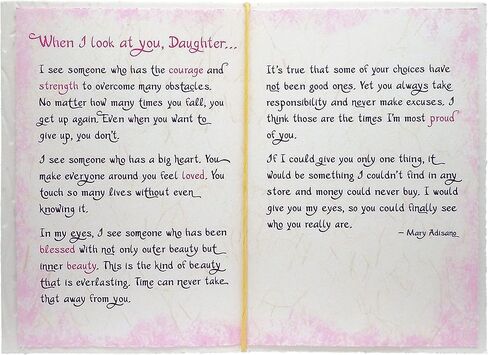 When I look at you, Daughter...
I see someone who has the courage and
strength to overcome many obstacles.
No matter how many times you fall, you
get up again. Even when you want to
give up, you don't.
I see someone who has a big heart. You
make everyone around you feel loved. You
touch so many lives without even
knowing it.
In my eyes, I see someone who has been
blessed with not only outer beauty but
inner beauty. This is the kind of beauty
that is everlasting. Time can never take
that away from you.
It's true that some of your choices have
not been good ones. Yet you always take
responsibility and never make excuses. I
think those are the times I'm most proud
of you.
If I could give you only one thing, it
would be something I couldn't find in any
store and money could never buy. I would
give you my eyes, so you could finally see
who you really are.
– Mary Adisano